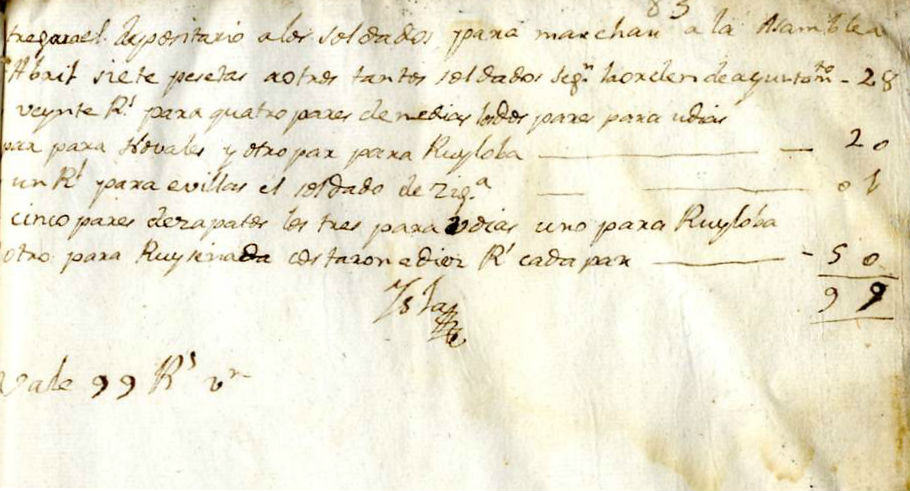 83
tregara el depositario a los soldados para marchar a la Asamblea
Abril siete pesetas a otros tantos soldados segn la orden de ayuntamto - 28
veynte Rs para quatro pares de medias los dos pares para udias
par para Novales y otro par para Ruyloba 20
un Rl para evillas el soldado de zig.a 01
cinco pares de zapatos los tres para vdias uno para Ruyloba
otro para Ruysenada costaron a diez Rs cada par - 50
99
Isla
Vale 99 Rs vn